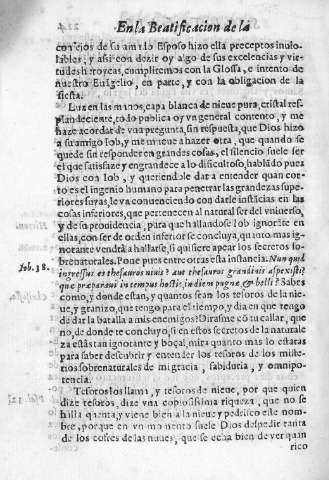 En la Beatificacion de la
consejos de su amado Esposo hizo ella preceptos inuio-
lables, y assi con dezir oy algo de sus excelencias y vir-
tudes heroycas, cumpliremos con la Glossa, e intento de
nuestro Euãgelio, en parte, y con la obligacion de la
fiesta.
Luz en las manos, capa blanca de nieue pura, cristal res-
plandeciente, todo publica oy vn general contento, y me
haze acordar de vna pregunta, sin respuesta, que Dios hizo
a su amigo Iob, y me mueue a hazer otra, que quando se
quede sin responder en grandes cosas, el silencio suele ser
el que satisfaze y engrandece a lo dificultoso, hablãdo pues
Dios con Iob, y queriendole dar a entender quan cor-
to es el ingenio humano para penetrar las grandezas supe-
riores suyas, le va conuenciendo con darle instãcias en las
cosas inferiores, que pertenecen al natural ser del vniuerso,
y de su prouidencia, para que hallandose Iob ignorãte en
ellas, con ser de orden inferior se concluya, quanto mas ig-
norante vendrà a hallarse, si quisiere apear los secretos so-
brenaturales. Pone pues entre otras esta instancia. Nun quid
Iob. 38.
ingressus es thesauros niuis? aut thesauros grandinis aspexisti?
que præparaui in tempus hostis, in diem pugnæ, & belli? Sabes
como, y donde estan, y quantos sean los tesoros de la nie-
ue, y granizo, que tengo para el tiempo, y dia en que tengo
de dar la batalla a mis enemigos? Dirasme cõ tu callar, que
no, de donde te concluyo, si en estos secretos de la naturale
za estàs tan ignorante y boçal, mira quanto mas lo estaras
para saber descubrir y entender los tesoros de los miste-
rios sobrenaturales de mi gracia, sabiduria, y omnipo-
tencia.
Tesoros los llama, y tesoros de nieue, por que quien
dize tesoros, dize vna copiosissima riqueza, que no se
halla quenta, y viene bien a la nieue y pedrisco este nom-
bre, porque en vn momento suele Dios despedir tanta
de los cofres de las nuues, que se echa bien de ver quan
rico